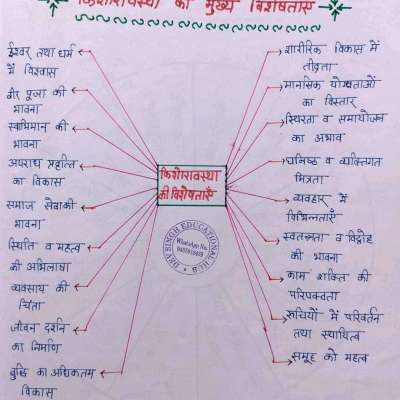 किशोरावस्था की मुख्य विशेषताएँ
ईश्वर तथा धर्म
में विश्वास
वीर पूजा की
भावना
स्वाभिमान की
भावना
अपराध प्रवृत्ति
का विकास
समाज सेवाकी
भावना
स्थिति व महत्व
की अभिलाषा
व्यवसाय की
चिंता
जीवन दर्शन
का निर्माण
बुद्धि का अधिकतम
विकास
किशोरावस्था
की विशेषताएँ
DEV SINGH EDUCATIONAL HUB
WhatsApp No.
शारीरिक विकास में
तीव्रता
मानसिक योग्यताओं
का विस्तार
स्थिरता व समायोजन
का अभाव
घनिष्ठ व व्यक्तिगत
मित्रता
व्यवहार में
विभिन्नताएँ
स्वतन्त्रता व विद्रोह
की भावना
काम शक्ति की
परिपक्वता
रुचियों में परिवर्तन
तथा स्थायित्व
समूह को महत्व